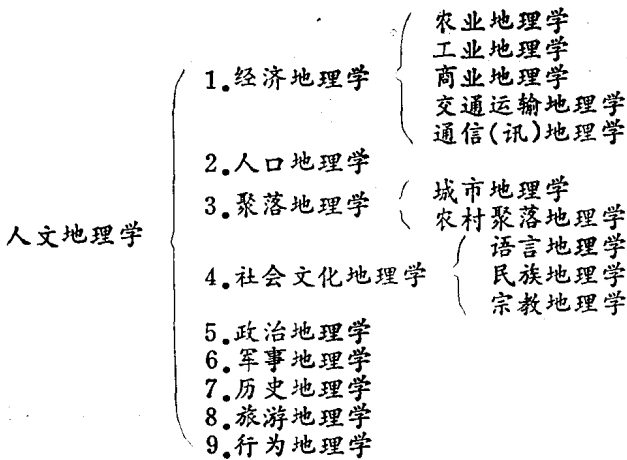 人文地理学
1.经济地理学
农业地理学
工业地理学
商业地理学
交通运输地理学
通信(讯)地理学
2.人口地理学
3.聚落地理学
城市地理学
农村聚落地理学
4.社会文化地理学
语言地理学
民族地理学
宗教地理学
5.政治地理学
6.军事地理学
7.历史地理学
8.旅游地理学
9.行为地理学